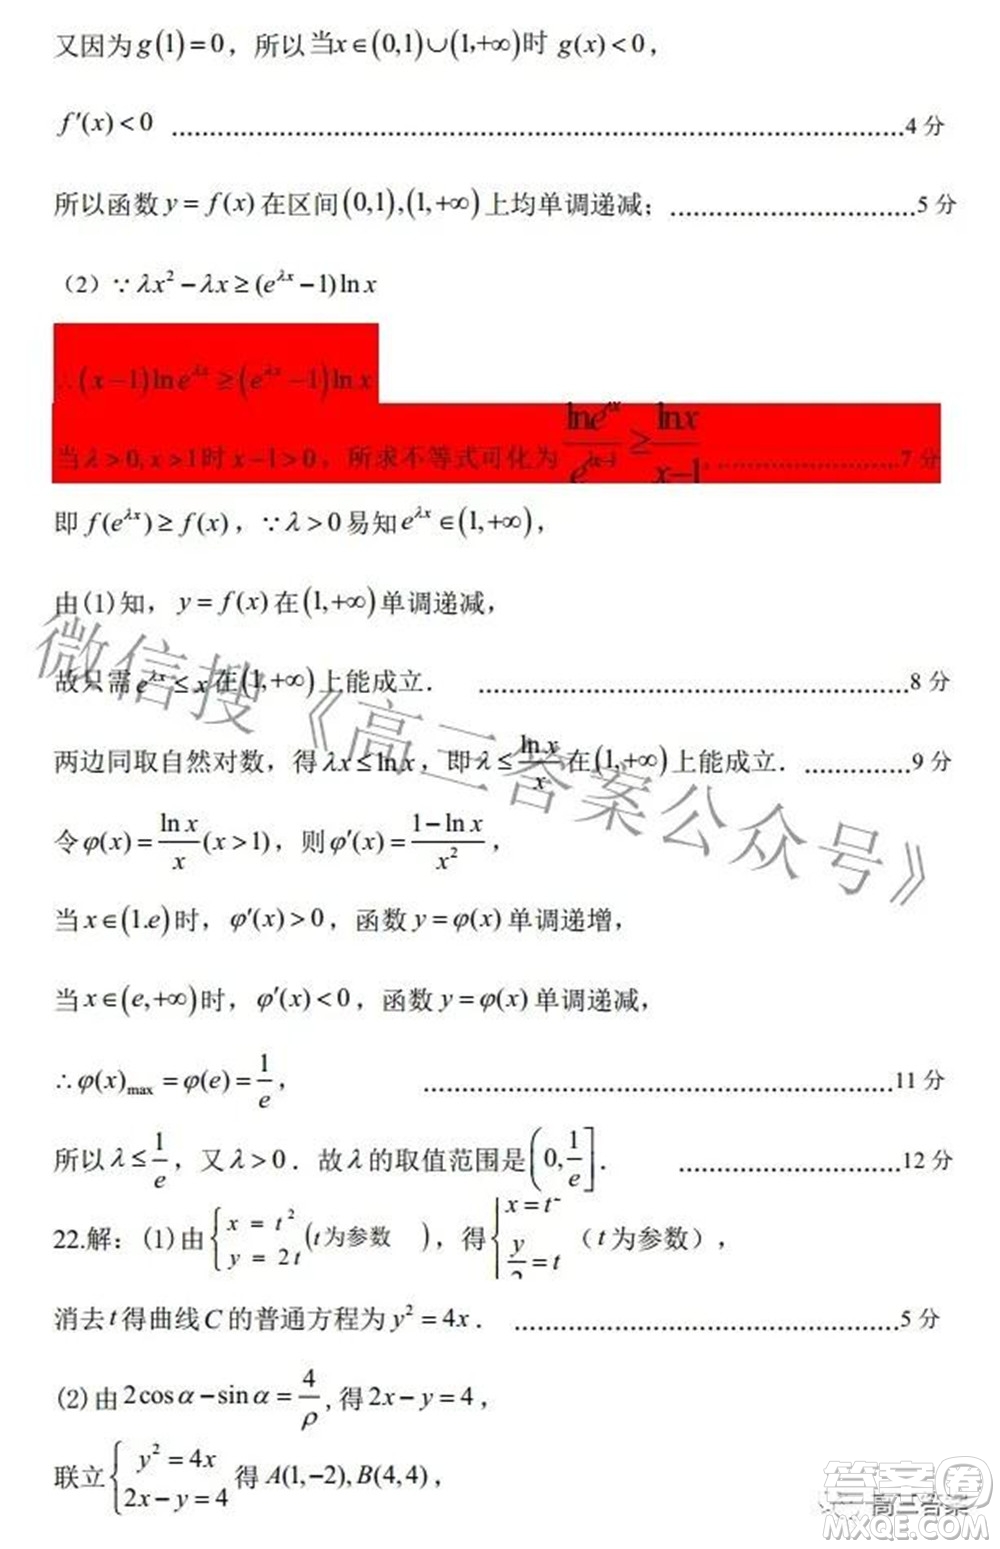 又因为g(1)=0，所以当x∈(0,1)∪(1,+∞)时 g(x)<0，
f′(x)<0 ……………………………………4 分
所以函数 y=f(x)在区间(0,1),(1,+∞)上均单调递减；……………………5 分
（2）∵λx²−λx≥(e^{λx}−1)ln x
∴(x−1)ln e^{λx}≥(e^{λx}−1)ln x
当λ>0,x>1时x−1>0，所求不等式可化为 \frac{ln e^{λx}}{e^{λx}−1}≥\frac{ln x}{x−1}. ……………………7 分
即 f(e^{λx})≥f(x)，∵λ>0易知e^{λx}∈(1,+∞)，
由(1)知，y=f(x)在(1,+∞)单调递减，
故只需e^{λx}≤x在(1,+∞)上能成立． ……………………8 分
两边同取自然对数，得λx≤ln x，即λ≤\frac{ln x}{x}在(1,+∞)上能成立．……………9 分
令φ(x)=\frac{ln x}{x}(x>1)，则φ′(x)=\frac{1−ln x}{x²}，
当x∈(1.e)时，φ′(x)>0，函数 y=φ(x)单调递增，
当x∈(e,+∞)时，φ′(x)<0，函数 y=φ(x)单调递减，
∴φ(x)_{max}=φ(e)=\frac{1}{e}， ……………………11 分
所以λ≤\frac{1}{e}，又λ>0．故λ的取值范围是(0,\frac{1}{e}]． ……………………12 分
22.解：(1)由{x = t² y = 2t (t为参数 )，得{x=t \frac{y}{2}=t（t为参数），
消去t得曲线C的普通方程为y²=4x． ……………………5 分
(2)由2cosα−sinα=\frac{4}{ρ},得2x−y=4，
联立{y²=4x 2x−y=4 得A(1,−2),B(4,4)，
微信搜《高三答案公众号》
高三答案
答案圈
MXQE.COM